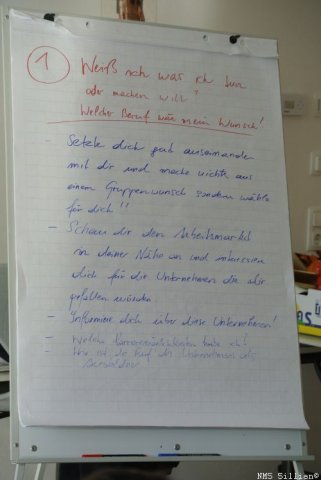 1 Weiß ich was ich tun
oder machen will?
Welcher Beruf wär mein Wunsch!
- Setzte dich gut auseinander
mit dir und mache nichts aus
einem Gruppenwunsch sondern wähle
für dich!!
- Schau dir den Arbeitsmarkt
in deiner Nähe an und interessiere
dich für die Unternehmen die dir
gefallen würden
- Informiere dich über diese Unternehmen!
- Welche Karrieremöglichkeiten habe ich?
- Wie ist der Ruf des Unternehmens als
Ausbildner
NMS Sillian©